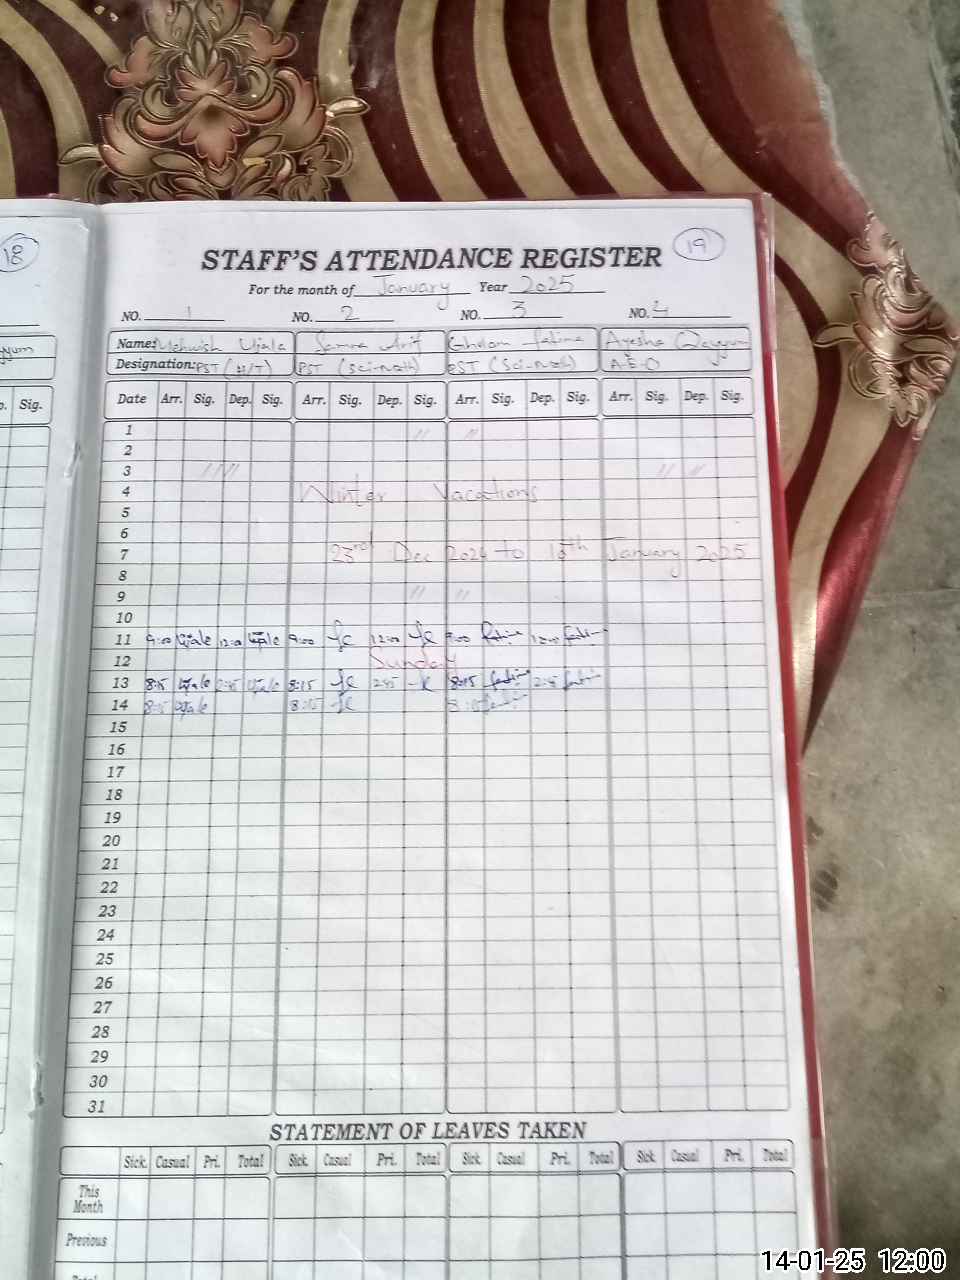 18
19
STAFF'S ATTENDANCE REGISTER
For the month of January Year 2025
NO. 1 NO. 2 NO. 3 NO. 4
Name: Mehwish Ujala Samra Arif Ghulam Fatima Ayesha Qayyum
Designation: PST (H/T) PST (Sci-Math) PST (Sci-Math) A-E-O
p. Sig.
Date Arr. Sig. Dep. Sig. Arr. Sig. Dep. Sig. Arr. Sig. Dep. Sig. Arr. Sig. Dep. Sig.
1 " "
2
3 " " " "
4 Winter Vacations
5
6
7 23rd Dec 2024 to 10th January 2025
8
9 " "
10
11 9:00 Ujala 12:00 Ujala 9:00 12:00 9:00 Fatima 12:00 Fatima
12 Sunday
13 8:15 Ujala 2:45 Ujala 8:15 2:45 8:15 Fatima 2:45 Fatima
14 8:15 Ujala 8:15 8:15 Fatima
15
16
17
18
19
20
21
22
23
24
25
26
27
28
29
30
31
STATEMENT OF LEAVES TAKEN
Sick Casual Pri. Total Sick Casual Pri. Total Sick Casual Pri. Total Sick Casual Pri. Total
This
Month
Previous
14-01-25 12:00